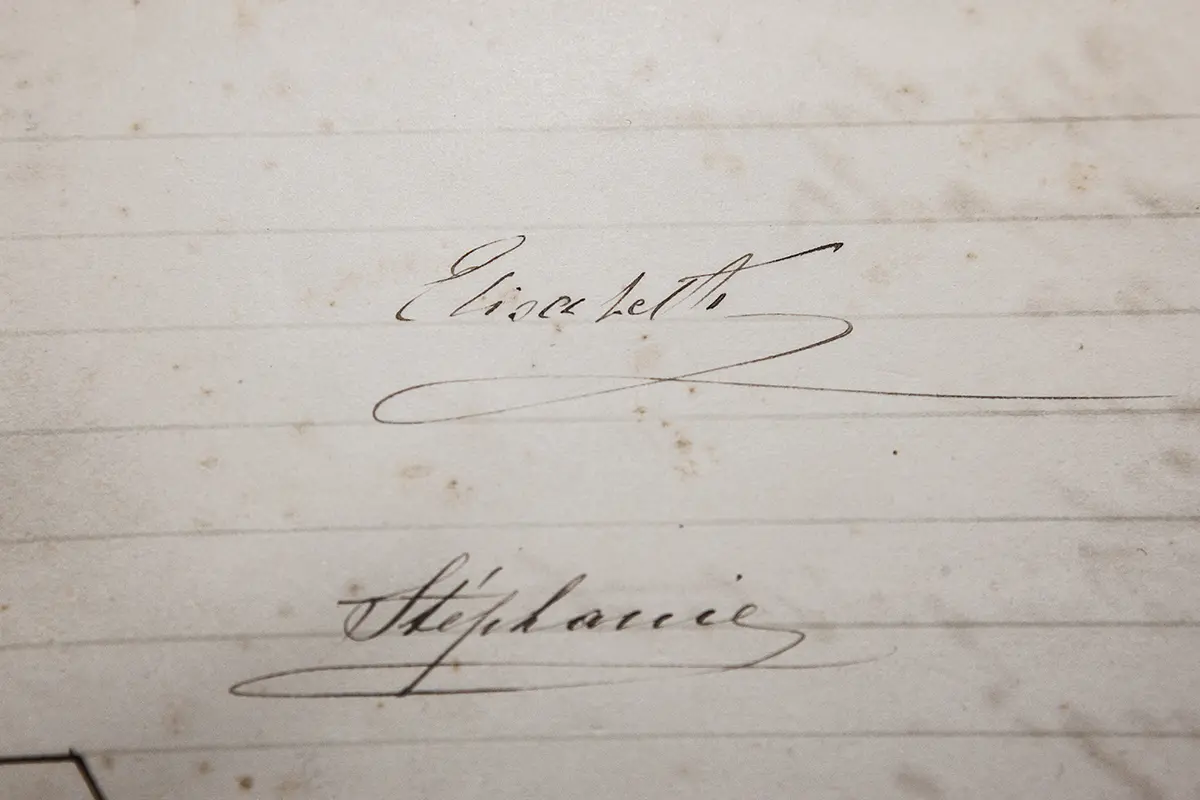 Elisabeth
Stéphanie